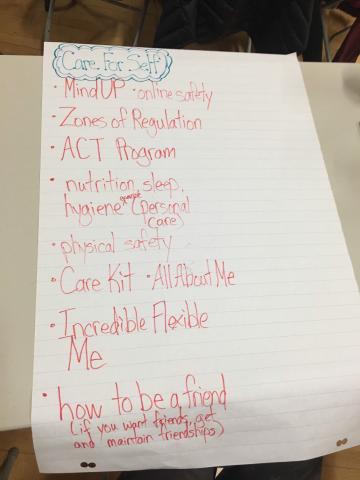 Care For Self
• MindUP • online safety
• Zones of Regulation
• ACT Program
• nutrition, sleep,
hygiene (personal
care)
• physical safety
• Care Kit • All About Me
• Incredible Flexible
Me
• how to be a friend
(if you want friends, get
and maintain friendships)